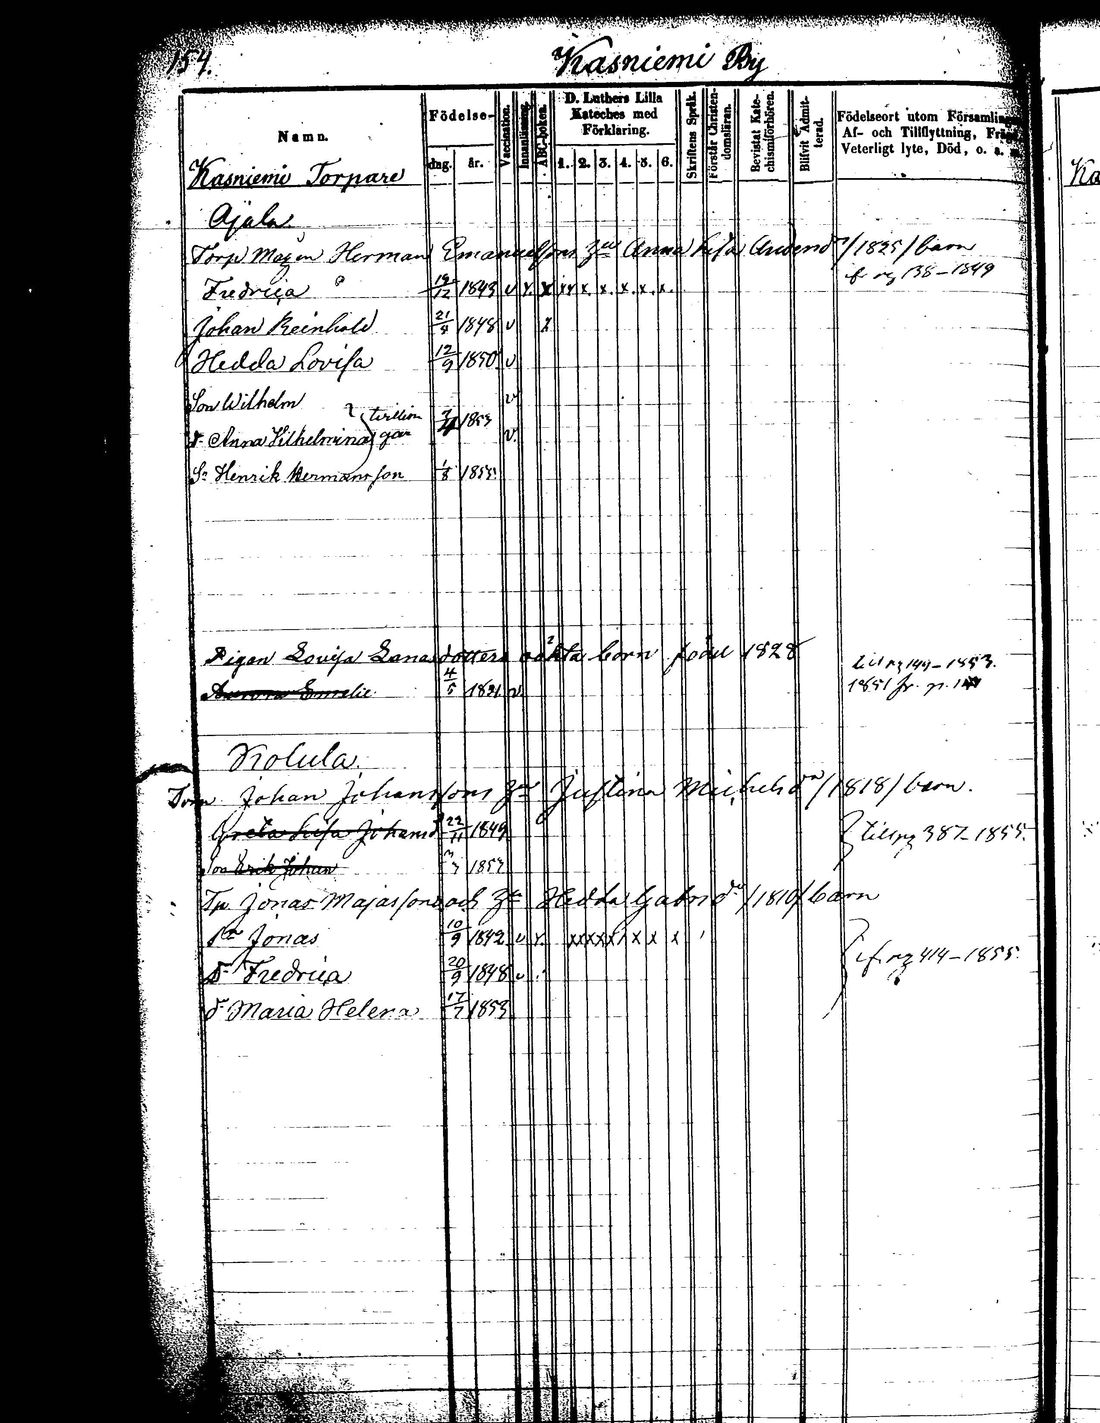 154.
Kasniemi By
Namn.
Födelse-
dag.
år.
Vaccination.
Innanläsning.
ABC-boken.
D. Luthers Lilla
Kateches med
Förklaring.
1. 2. 3. 4. 5. 6.
Skriftens Språk.
Förstår Christen-
domsläran.
Bevistat Kate-
chismiförhören.
Blifvit Admit-
terad.
Födelseort utom Församling
Af- och Tillflyttning,
Veterligt lyte, Död, o. s.
Kasniemi Torpare
Ajala.
Torp Herman Emanuelssons Anna Lisa /1825/ barn
Fredrica 19/12 1843 v x x xx x. x. x. x. x. 138-1849
Johan Reinhold 21/4 1848 v x
Hedda Lovisa 12/9 1850 v
Son Wilhelm v
7/4 1853
d. Anna Wilhelmina v
Sn Henrik Hermansson 1/8 1855.
Pigan Lovisa barn född 1828
till pg 144-1853.
Aurora Emelie 4/5 1851 v. 1851 fr. p.
Kolula.
Torp. Johan Johanssons Justina Michelsdr /1818/ barn.
Greta Lisa Johansd 22/11 1849 till pg 387-1855.
Son Erik Johan 1853
Tp. Jonas och Hedda Gabrielsdr /1810/ barn
Sn Jonas 10/9 1842 v x x x
d. Fredrica 20/9 1848 v pg 414-1855.
d. Maria Helena 17/7 1853